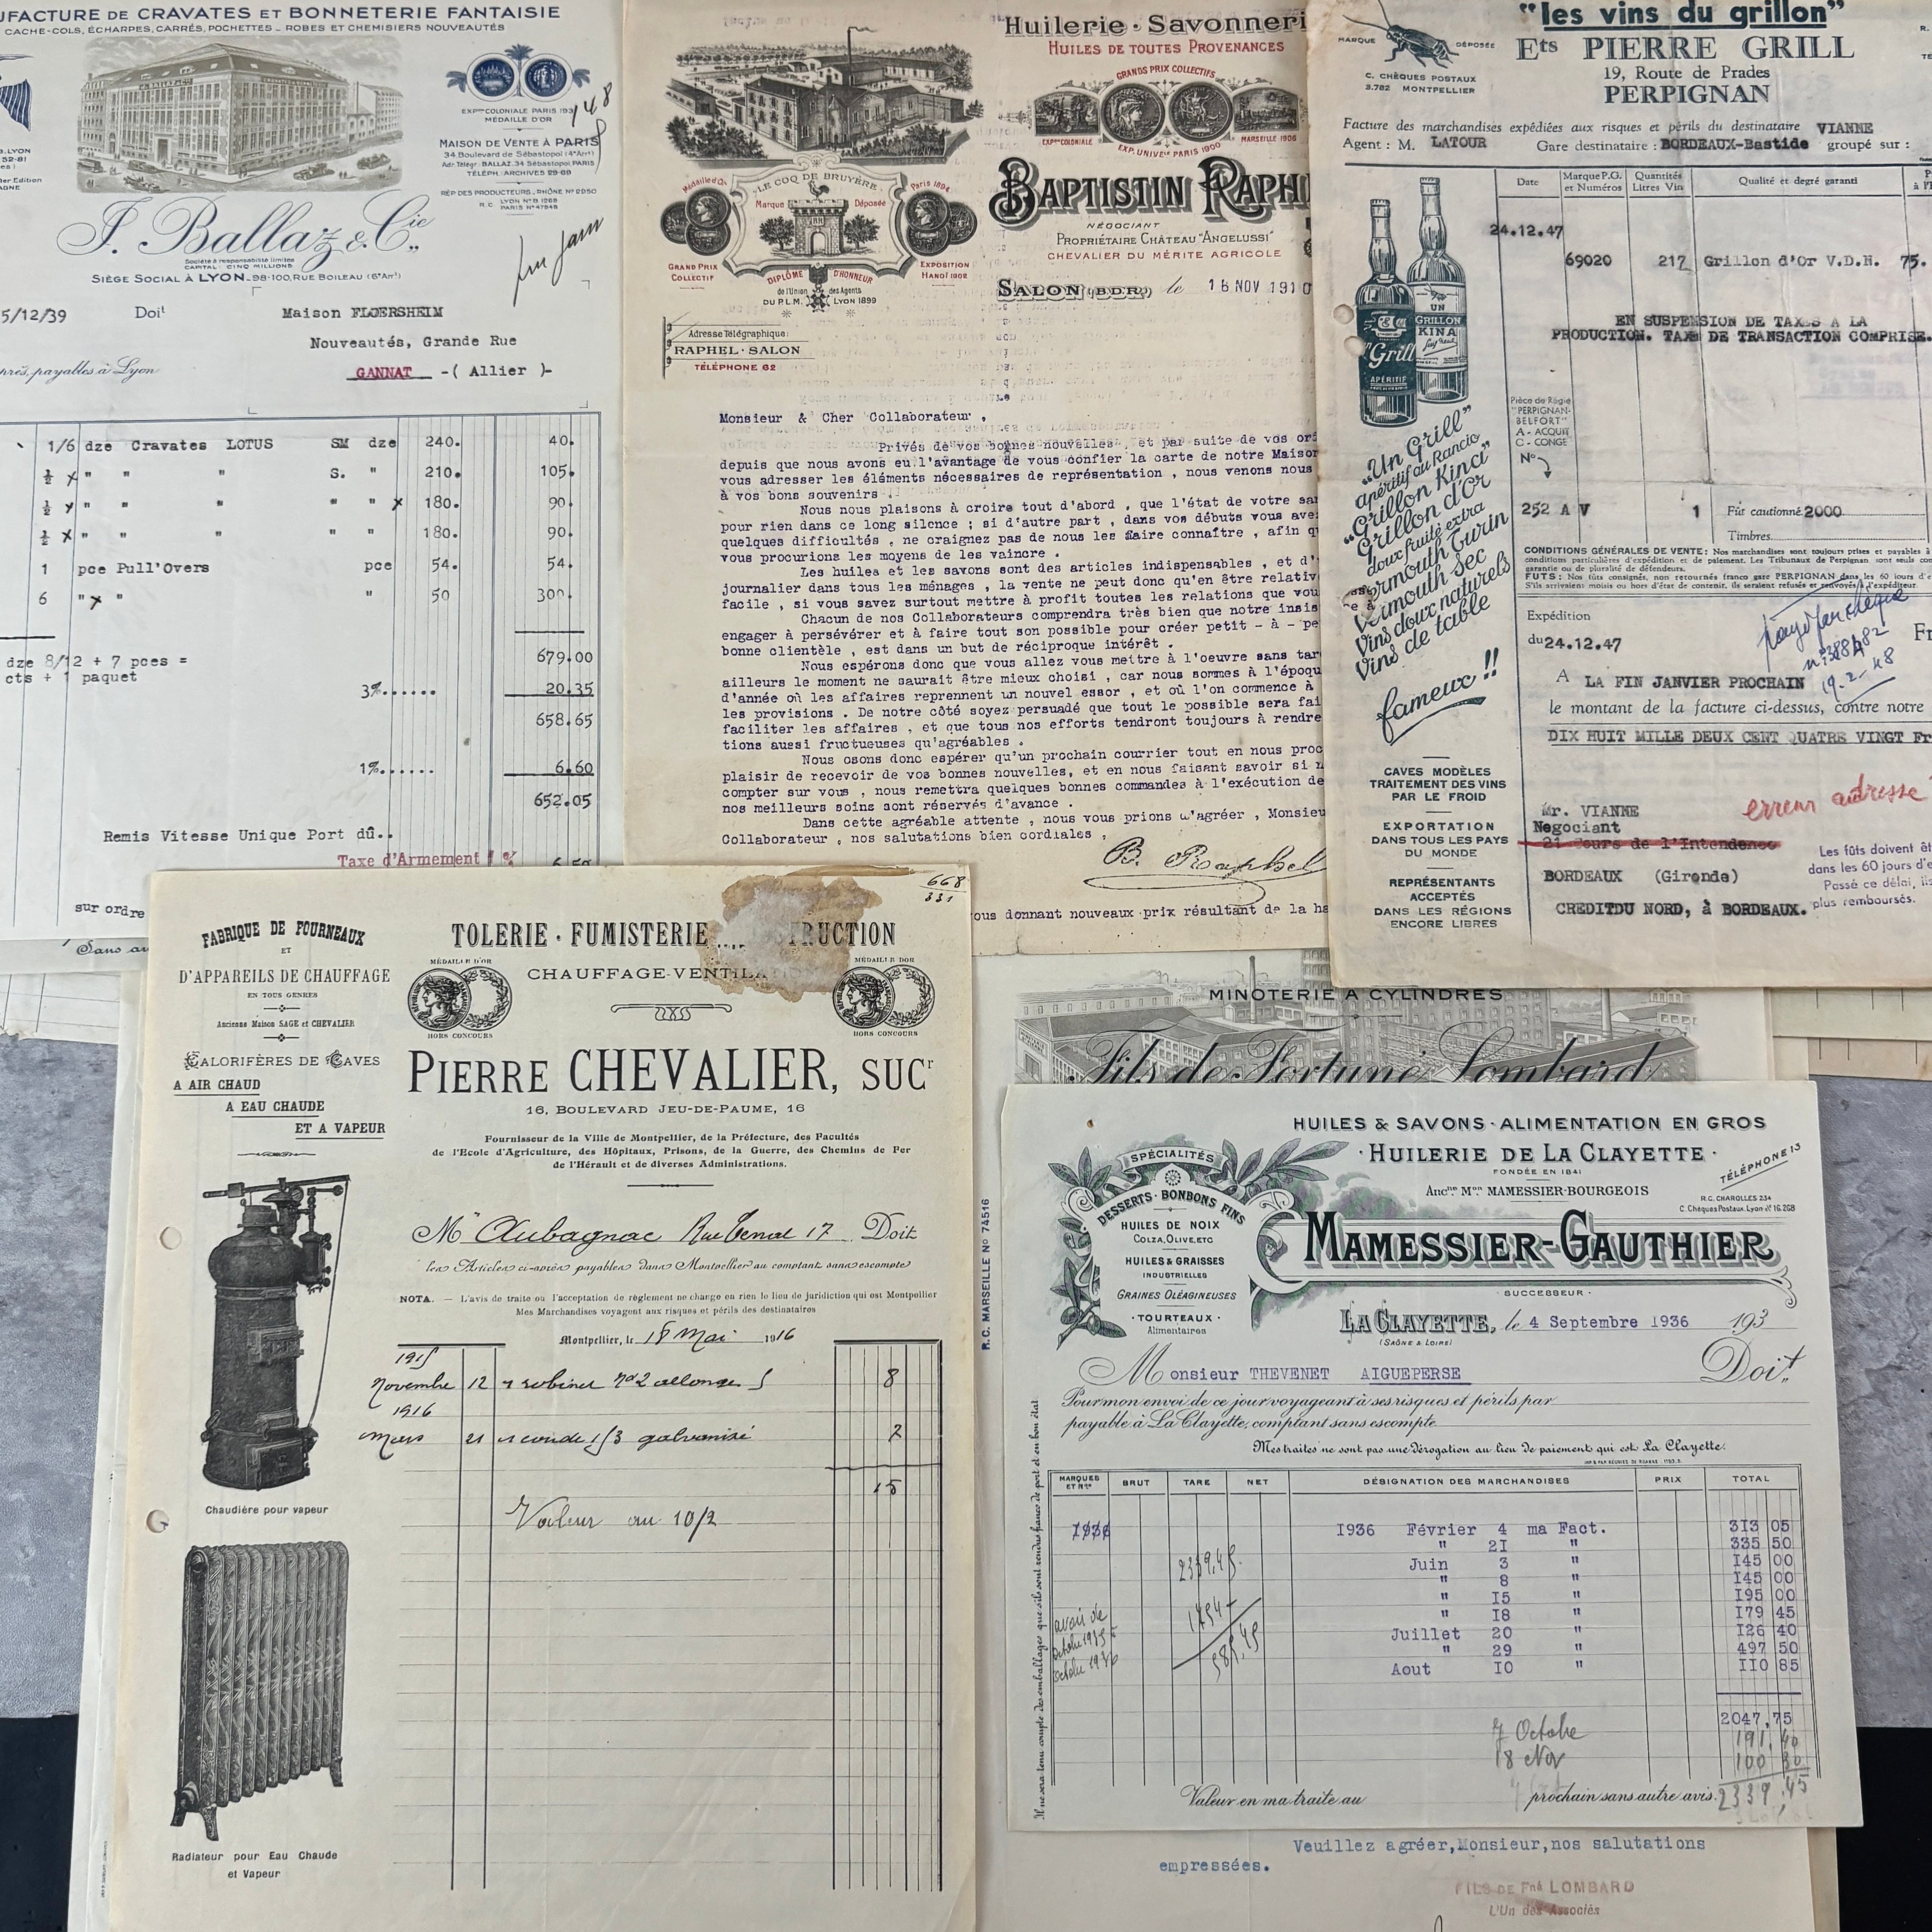 CRAVATES ET BONNETERIE FANTAISIE
CACHE-COLS, ÉCHARPES, CARRÉS, POCHETTES _ ROBES ET CHEMISIERS NOUVEAUTÉS
EXP^on COLONIALE PARIS 1931
MÉDAILLE D'OR
148
MAISON DE VENTE À PARIS
34 Boulevard de Sébastopol (4^e Arr^t)
Adr. Télégr: BALLAZ. 34 Sébastopol. PARIS
TÉLÉPH: ARCHIVES 29-69
RÉP. DES PRODUCTEURS, RHÔNE N° 2950
R.C. LYON N° B 1268
PARIS N° 47848
J. Ballaz & C^ie
Société à responsabilité limitée
CAPITAL: CINQ MILLIONS
SIÈGE SOCIAL À LYON_98-100, RUE BOILEAU (6^e Arr^t)
5/12/39 Doi^t Maison FLOERSHEIM
Nouveautés, Grande Rue
GANNAT -( Allier )-
payables à Lyon
1/6 dze Cravates LOTUS SM dze 240. 40.
½ " " " S. " 210. 105.
½ " " " " " x 180. 90.
½ " " " " " 180. 90.
1 pce Pull'Overs pce 54. 54.
6 " " " 50 300.
679.00
dze 8/12 + 7 pces =
cts + 1 paquet
3%...... 20.35
658.65
1%...... 6.60
652.05
Remis Vitesse Unique Port dû..
Taxe d'Armement 1 %
sur ordre
Huilerie · Savonneri
HUILES DE TOUTES PROVENANCES
GRANDS PRIX COLLECTIFS
EXP^on COLONIALE MARSEILLE 1906
EXP. UNIV^lle PARIS 1900
BAPTISTIN RAPH
NÉGOCIANT
PROPRIÉTAIRE CHÂTEAU "ANGELUSSI"
CHEVALIER DU MÉRITE AGRICOLE
"LE COQ DE BRUYÈRE"
Marque Déposée
Médaille d'Or
Paris 1894
GRAND PRIX COLLECTIF
EXPOSITION HANOÏ 1902
DIPLÔME D'HONNEUR
de l'Union des Agents
DU P.L.M. LYON 1899
SALON (B.D.R.) le 16 NOV 1910
Adresse Télégraphique:
RAPHEL-SALON
TÉLÉPHONE 62
Monsieur & Cher Collaborateur ,
Privés de vos bonnes nouvelles , et par suite de vos
depuis que nous avons eu l'avantage de vous confier la carte de notre Maison
vous adresser les éléments nécessaires de représentation , nous venons nous
à vos bons souvenirs .
Nous nous plaisons à croire tout d'abord , que l'état de votre
pour rien dans ce long silence ; si d'autre part , dans vos débuts vous
quelques difficultés , ne craignez pas de nous les faire connaître , afin
vous procurions les moyens de les vaincre .
Les huiles et les savons sont des articles indispensables , et d'
journalier dans tous les ménages , la vente ne peut donc qu'en être relativ
facile , si vous savez surtout mettre à profit toutes les relations que vou
Chacun de nos Collaborateurs comprendra très bien que notre insis
engager à persévérer et à faire tout son possible pour créer petit - à - pe
bonne clientèle , est dans un but de réciproque intérêt .
Nous espérons donc que vous allez vous mettre à l'oeuvre sans tar
ailleurs le moment ne saurait être mieux choisi , car nous sommes à l'époqu
d'année où les affaires reprennent un nouvel essor , et où l'on commence à
les provisions . De notre côté soyez persuadé que tout le possible sera fai
faciliter les affaires , et que tous nos efforts tendront toujours à rendre
tions aussi fructueuses qu'agréables .
Nous osons donc espérer qu'un prochain courrier tout en nous proc
plaisir de recevoir de vos bonnes nouvelles, et en nous faisant savoir si
compter sur vous , nous remettra quelques bonnes commandes à l'exécution de
nos meilleurs soins sont réservés d'avance .
Dans cette agréable attente , nous vous prions d'agréer , Monsieu
Collaborateur , nos salutations bien cordiales ,
B. Raphel
vous donnant nouveaux prix résultant de la ha
"les vins du grillon"
MARQUE DÉPOSÉE
E^ts PIERRE GRILL
C. CHÈQUES POSTAUX
3.782 MONTPELLIER
19, Route de Prades
PERPIGNAN
Facture des marchandises expédiées aux risques et périls du destinataire VIANNE
Agent : M. LATOUR Gare destinataire : BORDEAUX-Bastide groupé sur :
Date Marque P.G. et Numéros Quantités Litres Vin Qualité et degré garanti
24.12.47
69020 217 Grillon d'Or V.D.N. 75.
EN SUSPENSION DE TAXES A LA
PRODUCTION. TAXE DE TRANSACTION COMPRISE.
Grill
APÉRITIF
UN
GRILLON
KINA
Pièce de Régie
"PERPIGNAN-
BELFORT"
A - ACQUIT
C - CONGE
N°
252 A V 1 Fût cautionné 2000
Timbres
CONDITIONS GÉNÉRALES DE VENTE: Nos marchandises sont toujours prises et payables à
conditions particulières d'expédition et de paiement. Les Tribunaux de Perpignan sont seuls
garantie ou de pluralité de défendeurs.
FUTS: Nos fûts consignés, non retournés franco gare PERPIGNAN dans les 60 jours
S'ils arrivaient moisis ou hors d'état de contenir, ils seraient refusés et renvoyés à l'expéditeur.
"Un Grill"
apéritif au Rancio
"Grillon Kina"
Grillon d'Or
doux fruité extra
Vermouth Turin
Vermouth Sec
Vins doux naturels
Vins de table
fameux !!
Expédition
du 24.12.47
payé par chèque
n° 388482
19-2-48
A LA FIN JANVIER PROCHAIN
le montant de la facture ci-dessus, contre notre
DIX HUIT MILLE DEUX CENT QUATRE VINGT Fr
CAVES MODÈLES
TRAITEMENT DES VINS
PAR LE FROID
EXPORTATION
DANS TOUS LES PAYS
DU MONDE
REPRÉSENTANTS
ACCEPTÉS
DANS LES RÉGIONS
ENCORE LIBRES
erreur adresse
Mr. VIANNE
Negociant
21 Cours de l'Intendence
BORDEAUX (Gironde)
CREDITDU NORD, à BORDEAUX.
Les fûts doivent êt
dans les 60 jours d'e
Passé ce délai, ils
plus remboursés.
668
331
FABRIQUE DE FOURNEAUX
ET
D'APPAREILS DE CHAUFFAGE
EN TOUS GENRES
Ancienne Maison SAGE et CHEVALIER
CALORIFÈRES DE CAVES
A AIR CHAUD
A EAU CHAUDE
ET A VAPEUR
Chaudière pour vapeur
Radiateur pour Eau Chaude
et Vapeur
TOLERIE · FUMISTERIE RUCTION
CHAUFFAGE-VENTILATION
MÉDAILLE D'OR
HORS CONCOURS
MÉDAILLE D'OR
HORS CONCOURS
PIERRE CHEVALIER, SUC^r
16, BOULEVARD JEU-DE-PAUME, 16
Fournisseur de la Ville de Montpellier, de la Préfecture, des Facultés
de l'Ecole d'Agriculture, des Hôpitaux, Prisons, de la Guerre, des Chemins de Fer
de l'Hérault et de diverses Administrations.
M^r Aubagnac Rue 17 Doit
les Articles ci-après payables dans Montpellier au comptant sans escompte
NOTA. — L'avis de traite ou l'acceptation de règlement ne change en rien le lieu de juridiction qui est Montpellier
Mes Marchandises voyagent aux risques et périls des destinataires
Montpellier, le 18 Mai 1916
1915
Novembre 12 1 robinet n° 2 allonge 8
1916
Mars 21 coude 1/3 galvanisé 2
15
Valeur au 10/2
MINOTERIE A CYLINDRES
Fils de Fortuné Lombard
R.C. MARSEILLE N° 74516
HUILES & SAVONS · ALIMENTATION EN GROS
· HUILERIE DE LA CLAYETTE ·
FONDÉE EN 1841
TÉLÉPHONE 13
Anc^ne M^on MAMESSIER-BOURGEOIS
R.C. CHAROLLES 234
C. Chèques Postaux. Lyon N° 16.268
MAMESSIER-GAUTHIER
· SUCCESSEUR ·
SPÉCIALITÉS
DESSERTS - BONBONS FINS
HUILES DE NOIX
COLZA, OLIVE, ETC
HUILES & GRAISSES
INDUSTRIELLES
GRAINES OLÉAGINEUSES
· TOURTEAUX ·
Alimentaires
LA CLAYETTE, le 4 Septembre 1936 193
(SAÔNE & LOIRE)
Monsieur THEVENET AIGUEPERSE Doit
Pour mon envoi de ce jour voyageant à ses risques et périls par
payable à La Clayette, comptant sans escompte
Mes traites ne sont pas une dérogation au lieu de paiement qui est La Clayette.
Il ne sera tenu compte des emballages que s'ils sont rendus franco de port et en bon état
MARQUES ET N^os BRUT TARE NET DÉSIGNATION DES MARCHANDISES PRIX TOTAL
1936 1936 Février 4 ma Fact. 313 05
" 21 " 335 50
Juin 3 " 145 00
" 8 " 145 00
" 15 " 195 00
" 18 " 179 45
Juillet 20 " 126 40
" 29 " 497 50
Aout 10 " 110 85
2339,45
1754-
585,45
avoir de
octobre 1935
octobre 1936
2047,75
7 Octobre 191,40
18 Nov 100 30
2339,45
Valeur en ma traite au prochain sans autre avis.
Veuillez agréer, Monsieur, nos salutations
empressées.
FILS DE F^né LOMBARD
L'Un des Associés